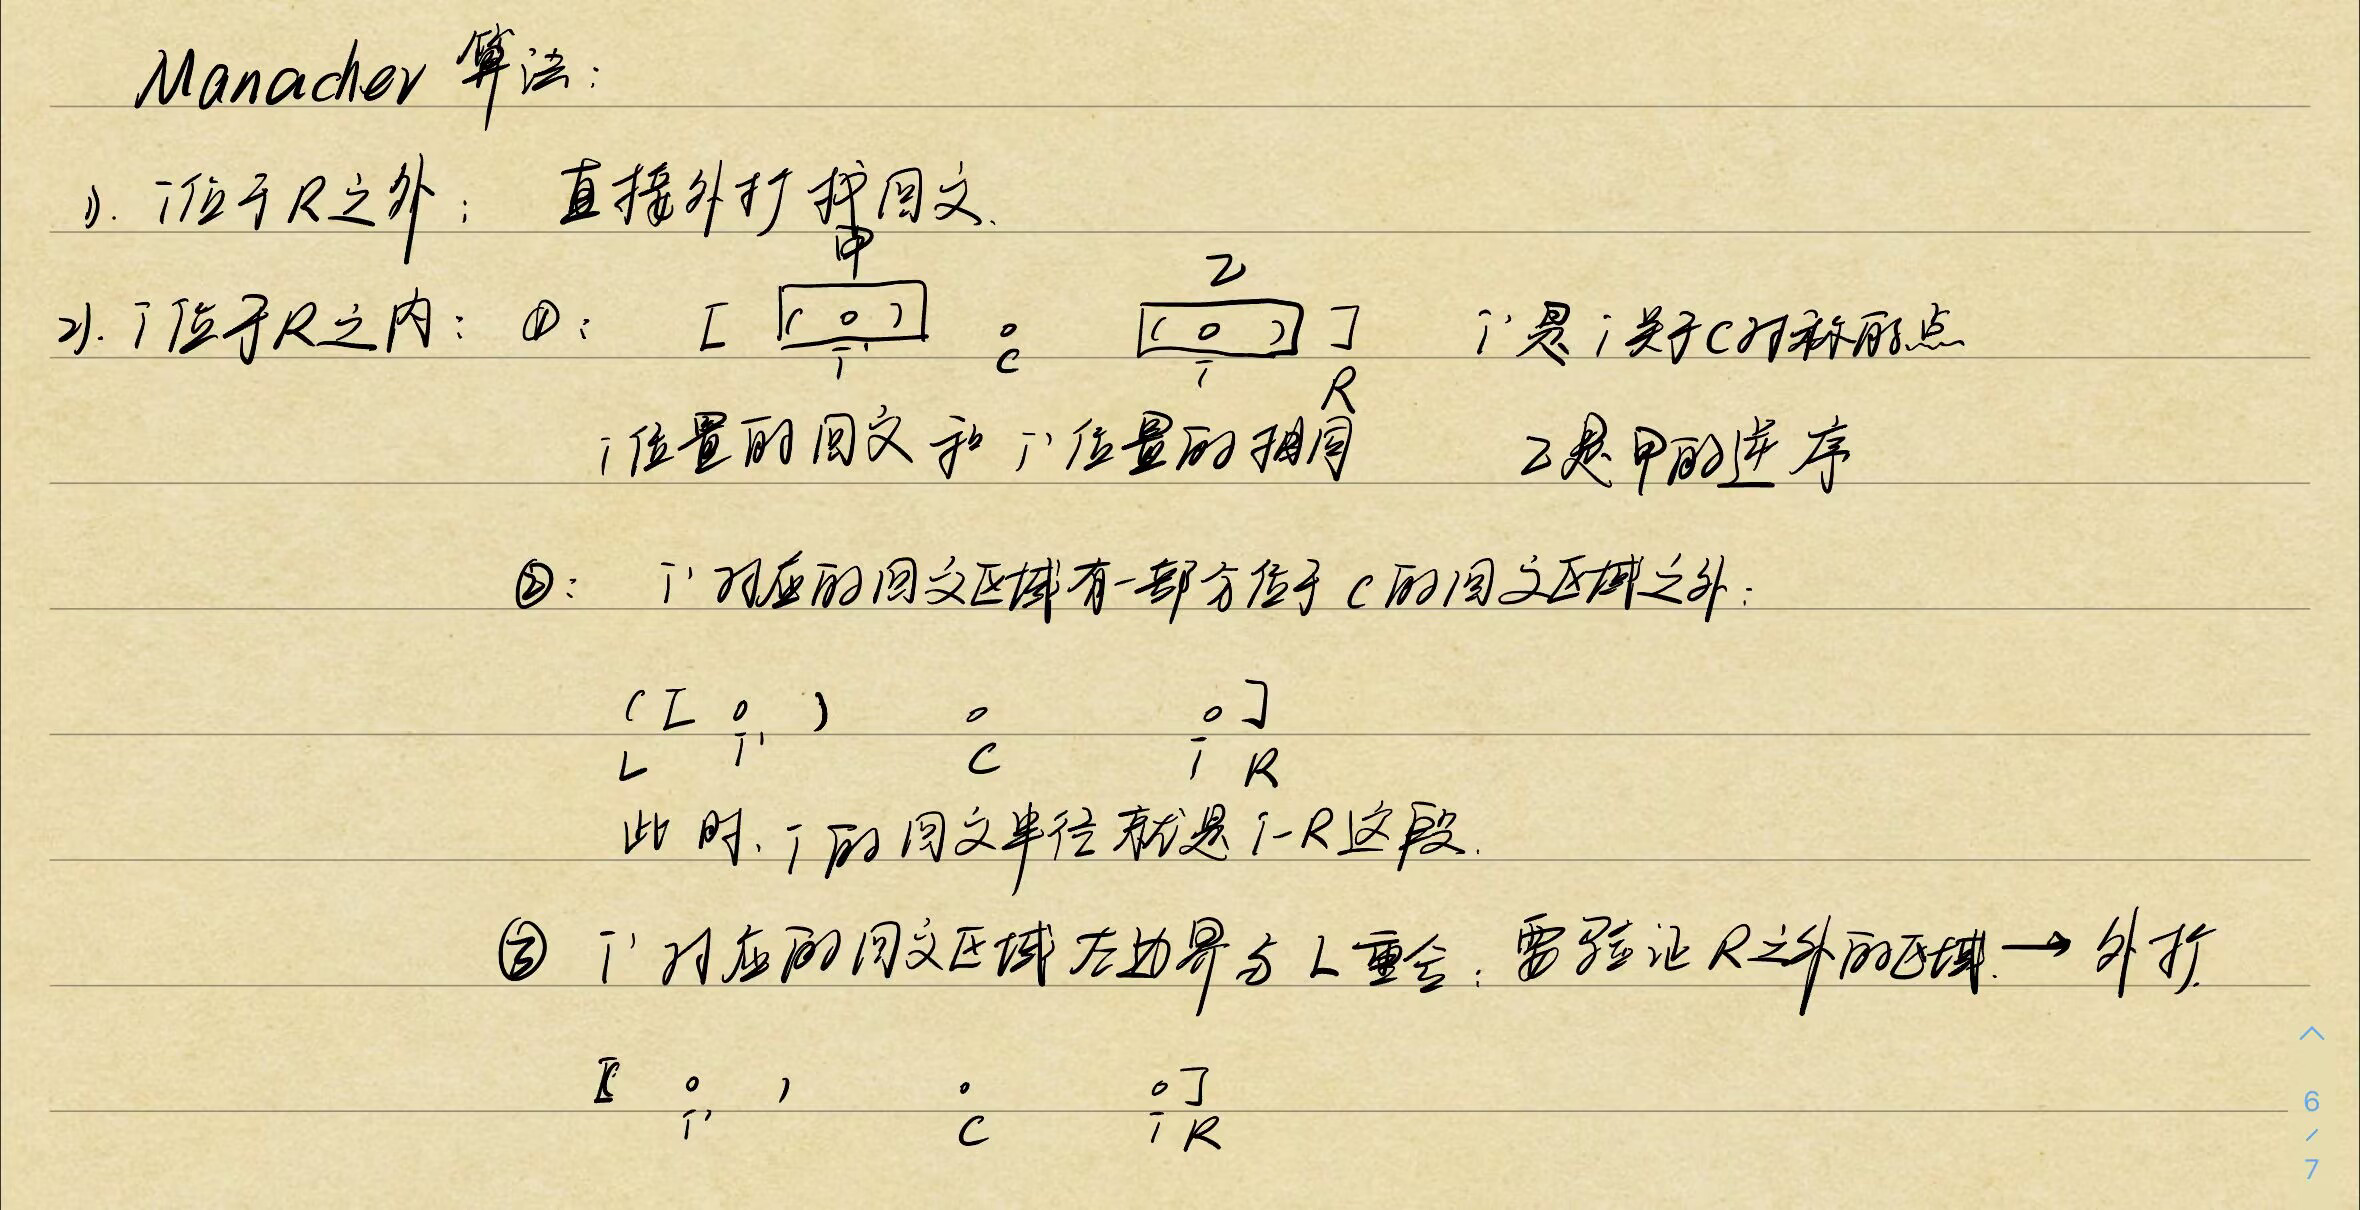 Manacher 算法:
1). i位于R之外: 直接外扩 护回文.
甲 乙
2). i位于R之内: ①: [ ( o ) o ( o ) ] i'是i关于C对称的点
i' C i R
i位置的回文和i'位置的相同 乙是甲的逆序
②: i'对应的回文区域有一部分位于C的回文区域之外:
( [ o ) o o ]
L i' C i R
此时, i的回文半径就是i-R这段.
③ i'对应的回文区域左边界与L重合: 需验证R之外的区域. → 外扩.
[( o ) o o ]
i' C i R
6
/
7